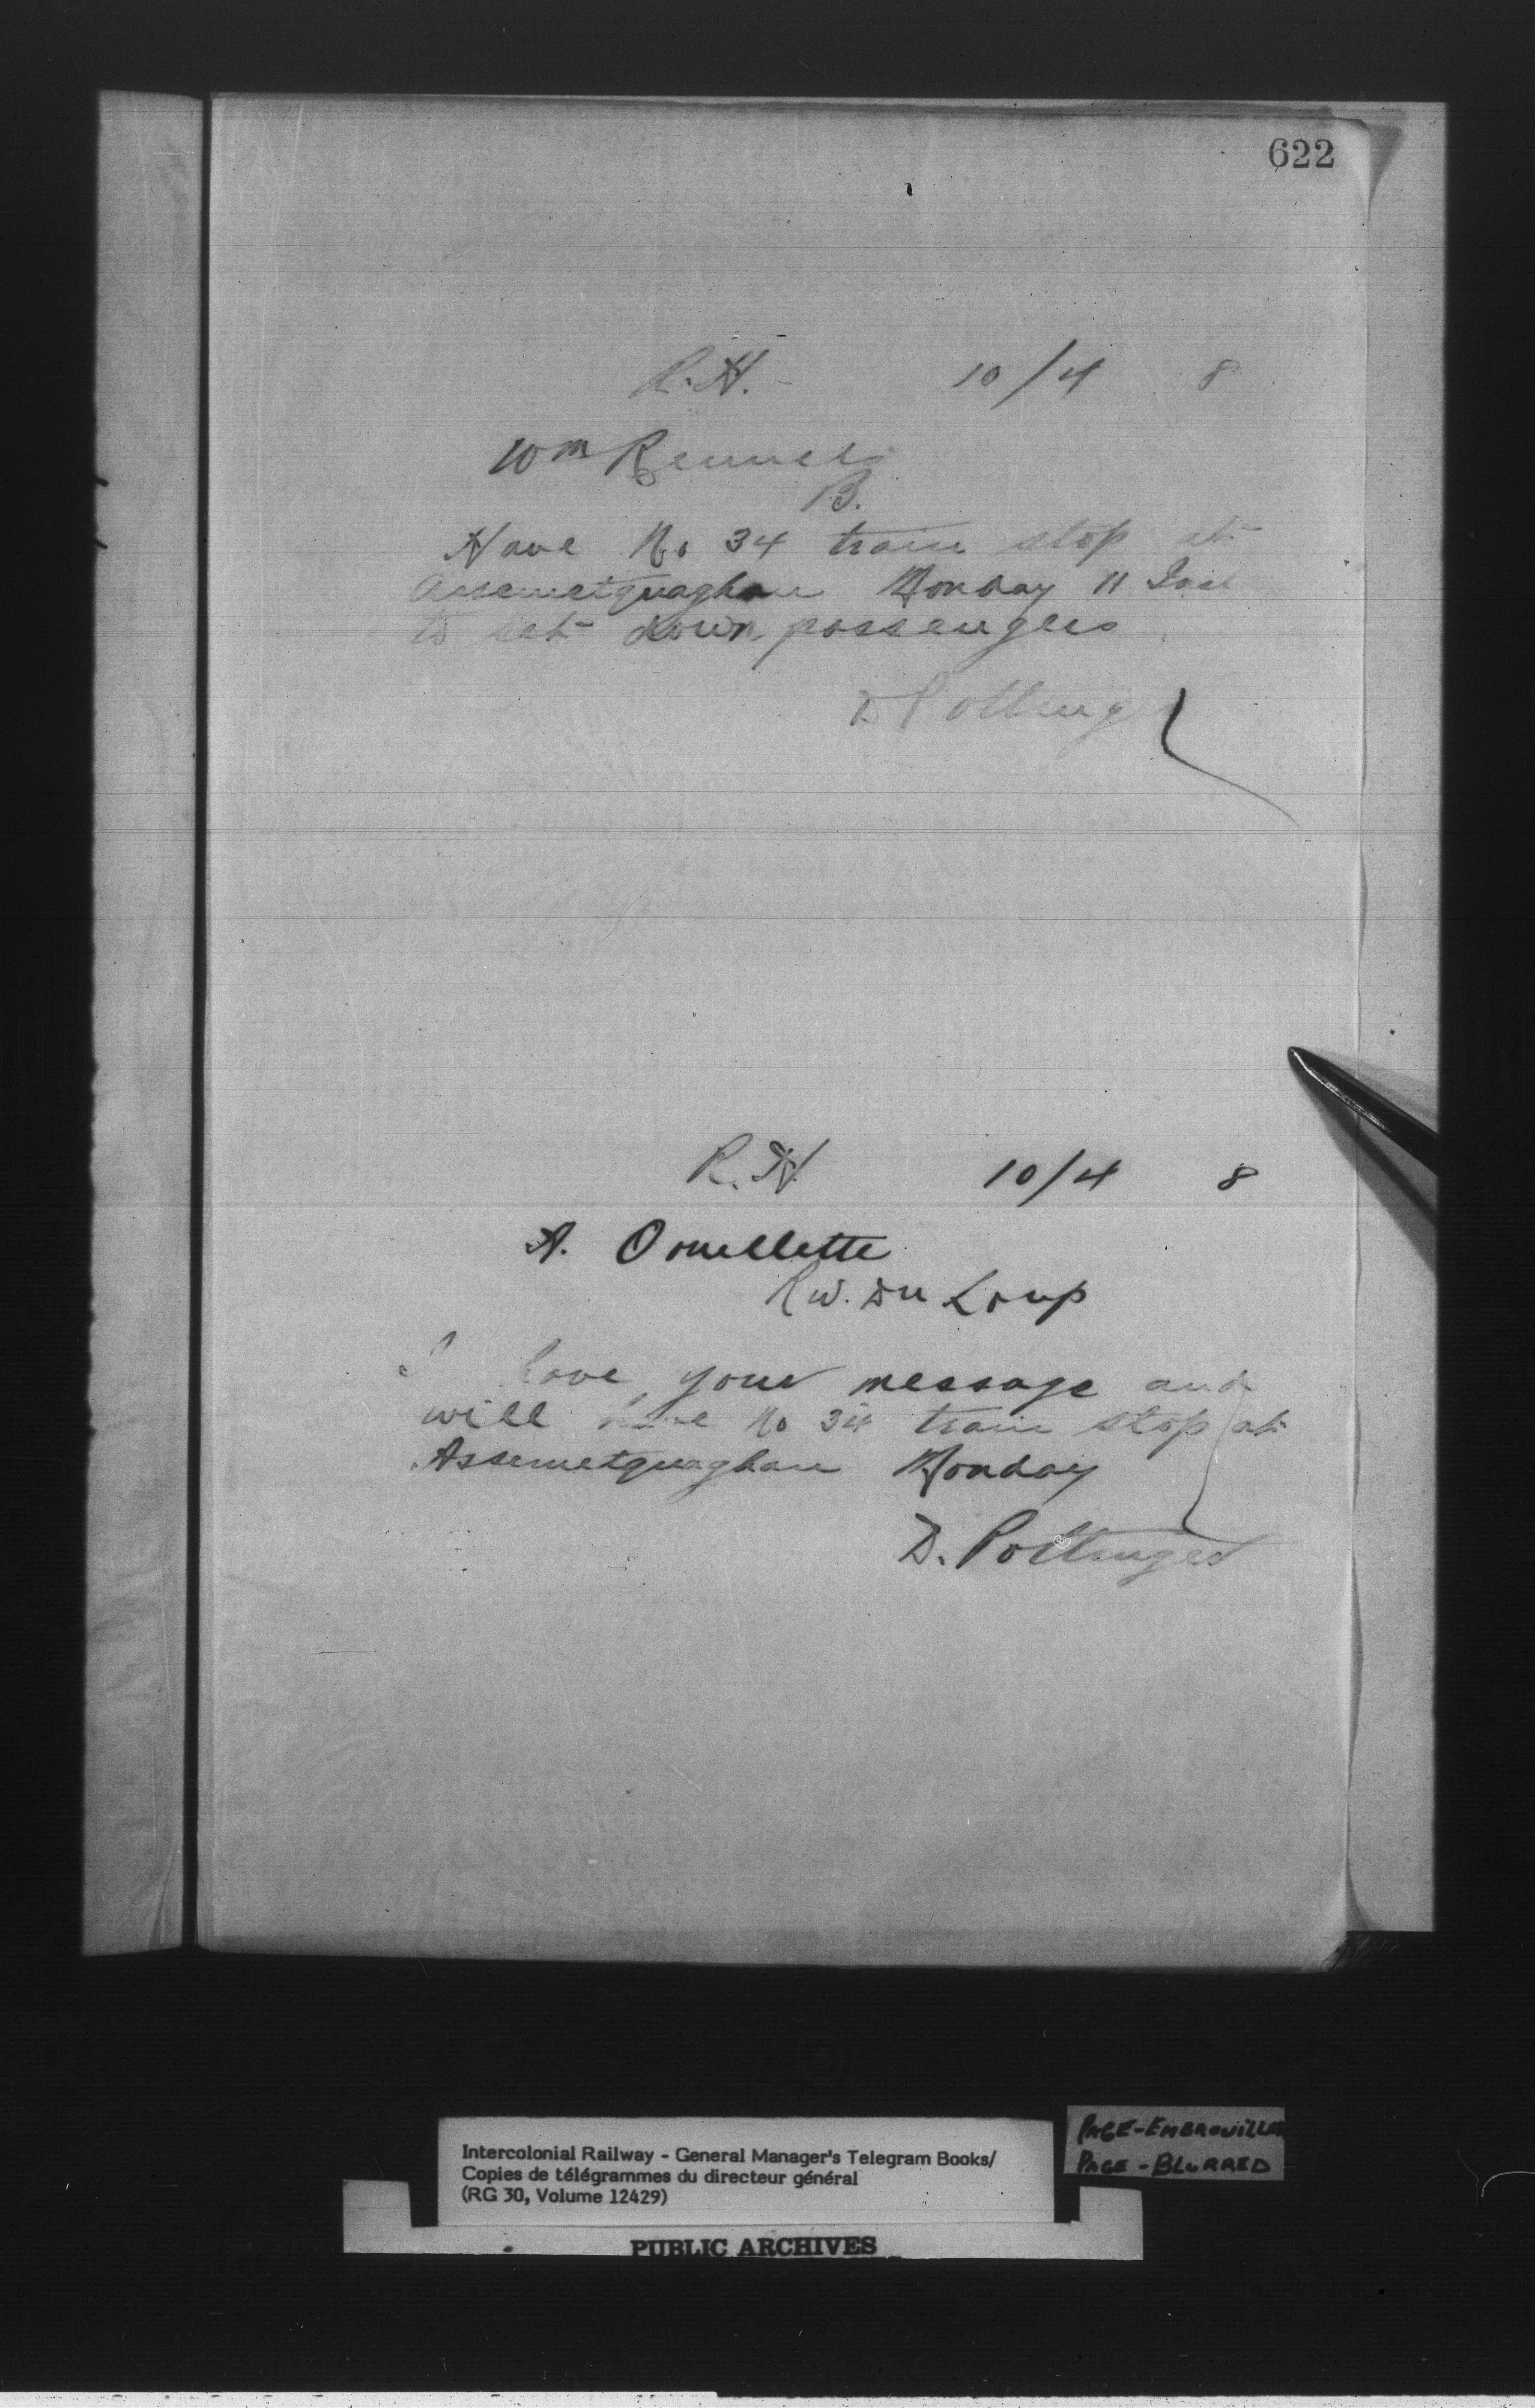 622
R. H. - 10/4 8
Wm Rennels
B.
Have No 34 train stop at
Assemetquaghan Monday 11 Inst
to set down passengers
D Pottinger
R. H. 10/4 8
A. Ouellette
Riv. Du Loup
I have your message and
will have No 34 train stop at
Assemetquaghan Monday
D. Pottinger
Intercolonial Railway - General Manager's Telegram Books/
Copies de télégrammes du directeur général
(RG 30, Volume 12429)
PUBLIC ARCHIVES
PAGE-EMBROUILLER
PAGE-BLURRED